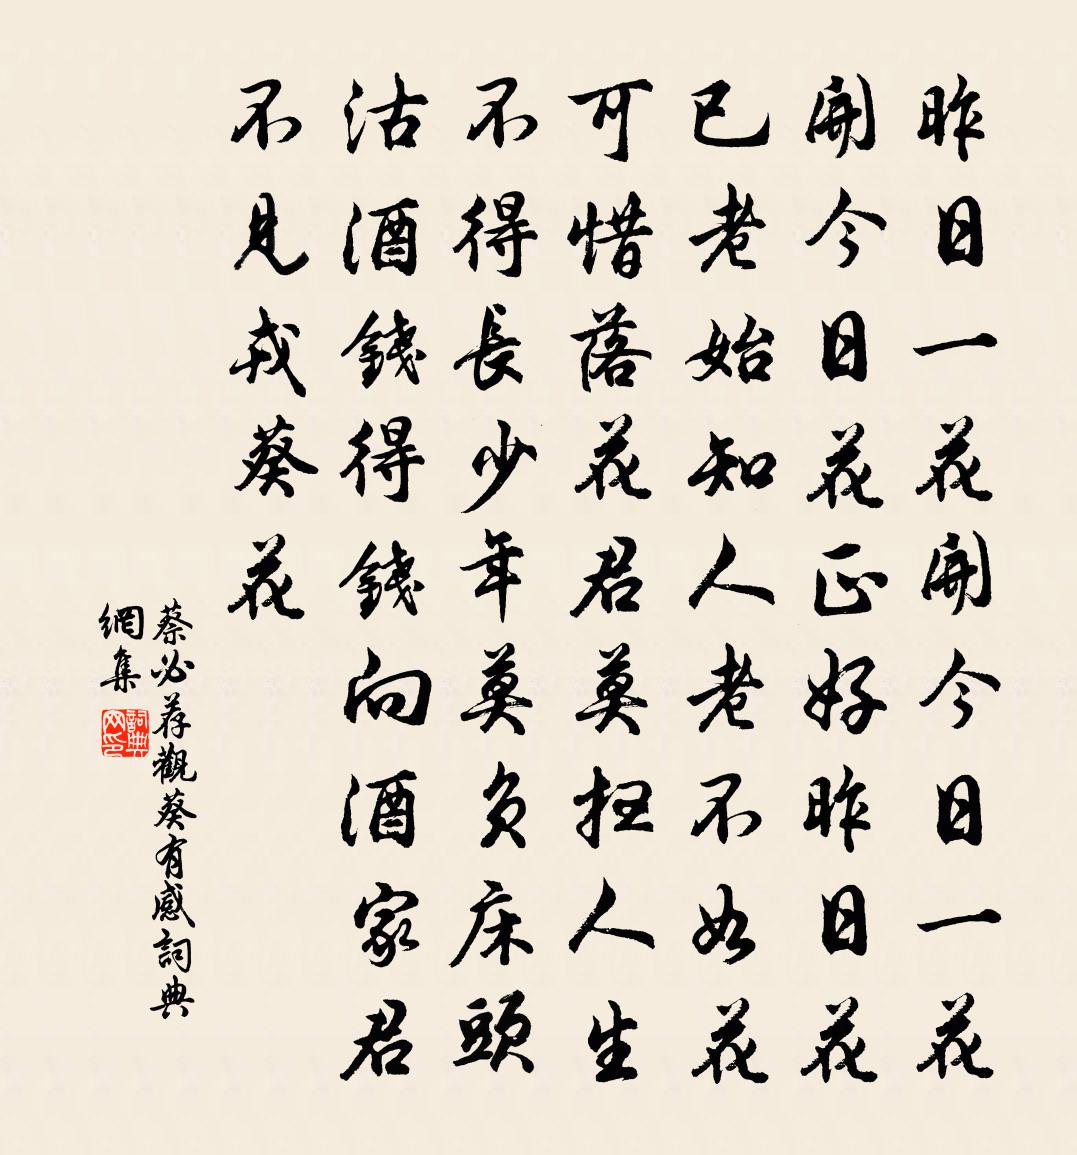 昨日一花開今日一花
開今日花正好昨日花
已老始知人老不如花
可惜落花君莫扫人生
不得長少年莫負床頭
沽酒錢得錢向酒家君
不見戎葵花
蔡必荐觀葵有感詞典
網集
詞典
网印